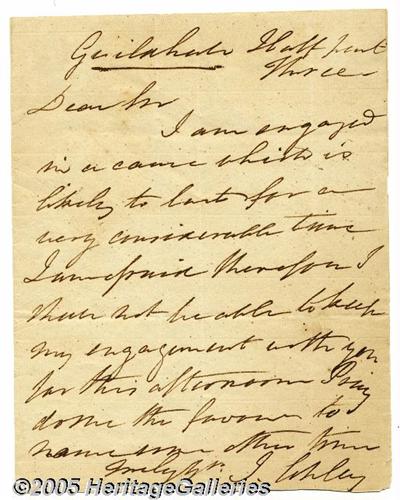 Guildhall Half past
Three
Dear Sir
I am engaged
in a cause which is
likely to last for a
very considerable time
I am afraid therefore I
shall not be able to keep
my engagement with you
for this afternoon Pray
do me the favour to
name some other time
© 2005 HeritageGalleries